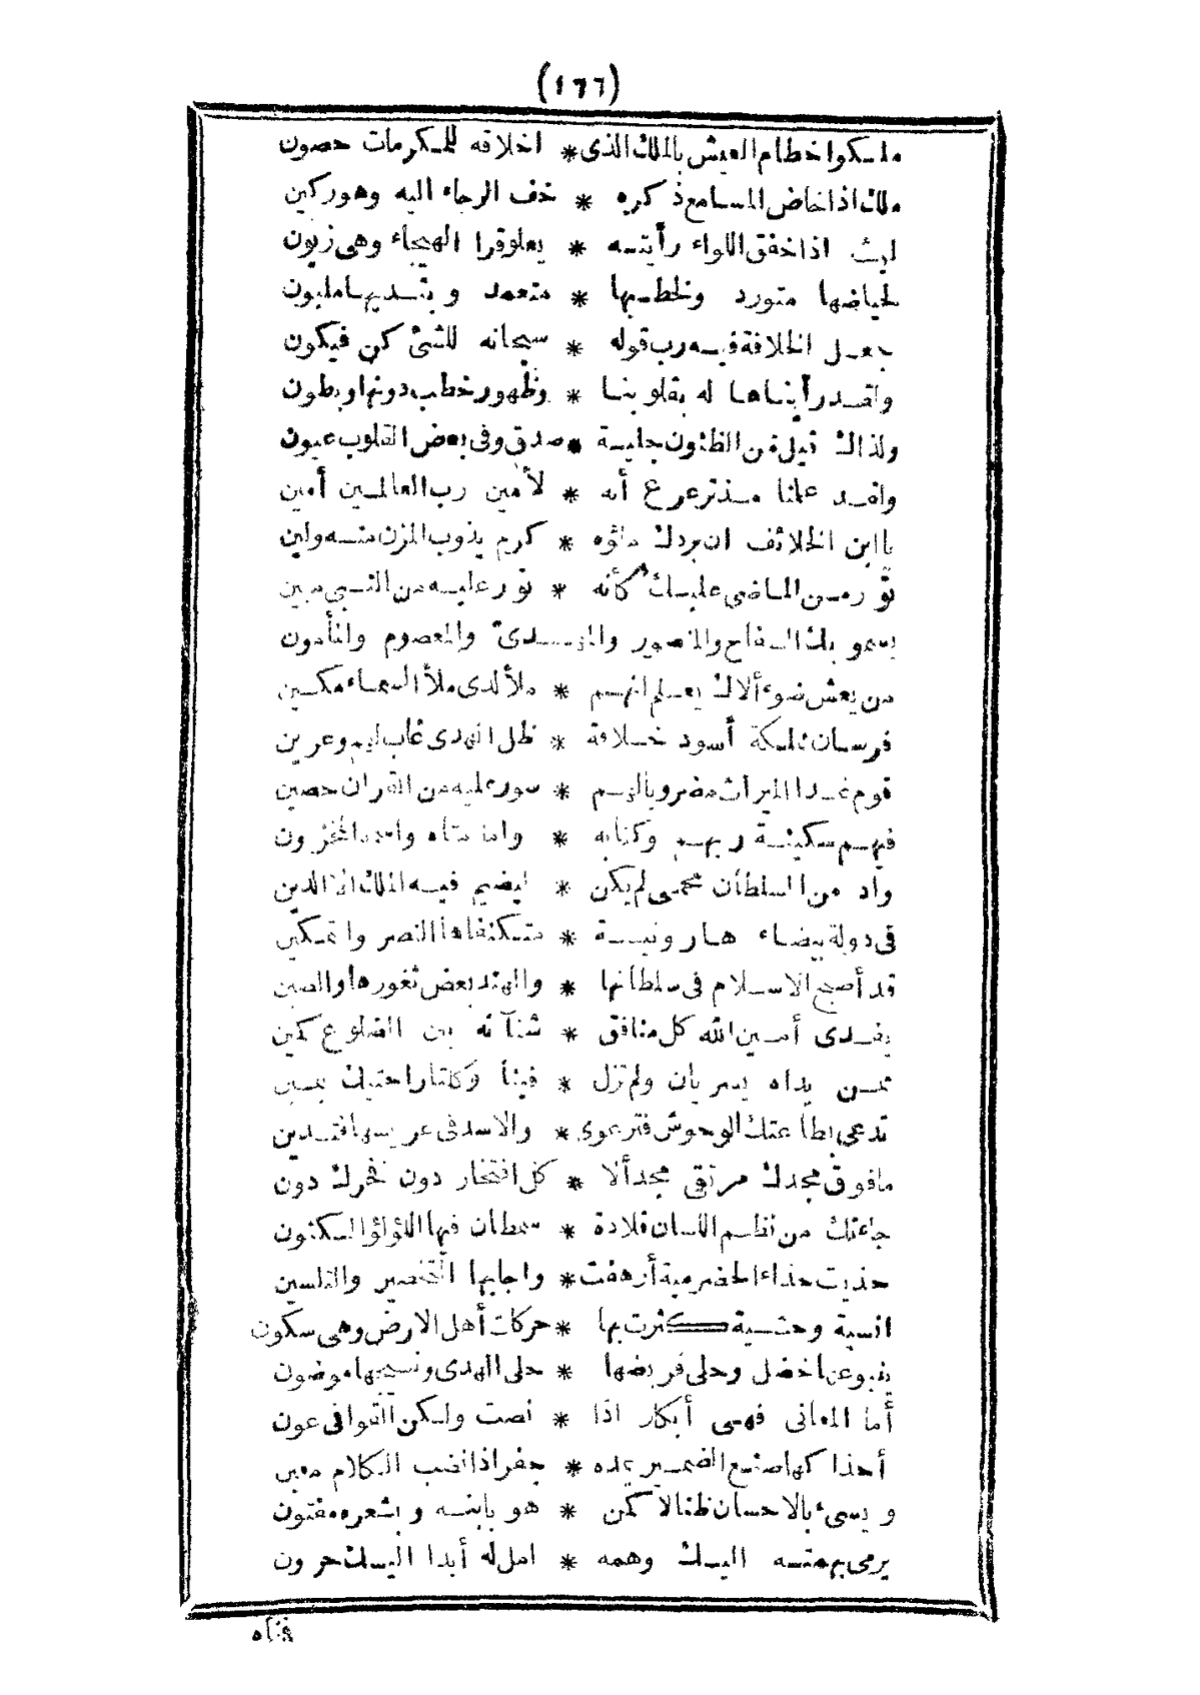 (١٦٦)
ملكوا خطام العيش بالملك الذى * اخلاقه للمكرمات حصون
ملك اذا خاض المسامع ذكره * خف الرجاء اليه وهو ركين
ليث اذا خفق اللواء رأيته * يعلو قرا الهيجاء وهى زبون
لحياضها متورد ولخطبها * متعمد وبثديها ملبون
جعل الخلافة فيه رب قوله * سبحانه للشئ كن فيكون
ولقد رأيناها له بقلوبنا * وظهور خطب دونها وبطون
ولذاك قيل من الظنون جلية * صدق وفى بعض القلوب عيون
ولقد علمنا مذ ترعرع أنه * لأمين رب العالمين أمين
يا ابن الخلائف ان بردك ملؤه * كرم يذوب المزن منه ولين
نور من الماضى عليك كأنه * نور عليه من النبى مبين
يسمو بك السفاح والمنصور والمهدى والمعصوم والمأمون
من يعش ضوء ألاك يعلم انهم * ملأ لدى ملأ السماء مكين
فرسان مملكة أسود خلافة * ظل الهدى غاب لهم وعرين
قوم غدا الميراث مضروبا لهم * سور عليه من القران حصين
فيهم سكينة ربهم وكتابه * وامامتاه واسمه المخزون
واد من السلطان محمى لم يكن * ليضيم فيه الملك الا الدين
فى دولة بيضاء هارونية * متكنفاها النصر والتمكين
قد أصبح الاسلام فى سلطانها * والهند بعض ثغورها والصين
يفدى أمين الله كل منافق * شنآنه بين الضلوع كمين
ممن يداه يسريان ولم تزل * فينا وكلتا راحتيك يمين
تدعى بطاعتك الوحوش فترعوى * والاسد فى عريسها فتدين
ما فوق مجدك مرتقى مجد ألا * كل افتخار دون فخرك دون
جاءتك من نظم اللسان قلادة * سمطان فيها اللؤلؤ المكنون
حذيت حذاء الحضرمية أرهفت * واجابها التخصير والتلسين
انسية وحشية كثرت بها * حركات أهل الارض وهى سكون
ينبوعها خضل وحلى قريضها * حلى الهدى ونسيجها موضون
أما المعانى فهى أبكار اذا * نصت ولكن القوافى عون
أحذاكها صنع الضمير يمده * جفر اذا نضب الكلام معين
ويسئ بالاحسان ظنا لا كمن * هو بابنه وبشعره مفتون
يرمى بهمته اليك وهمه * امل له أبدا اليك حرون